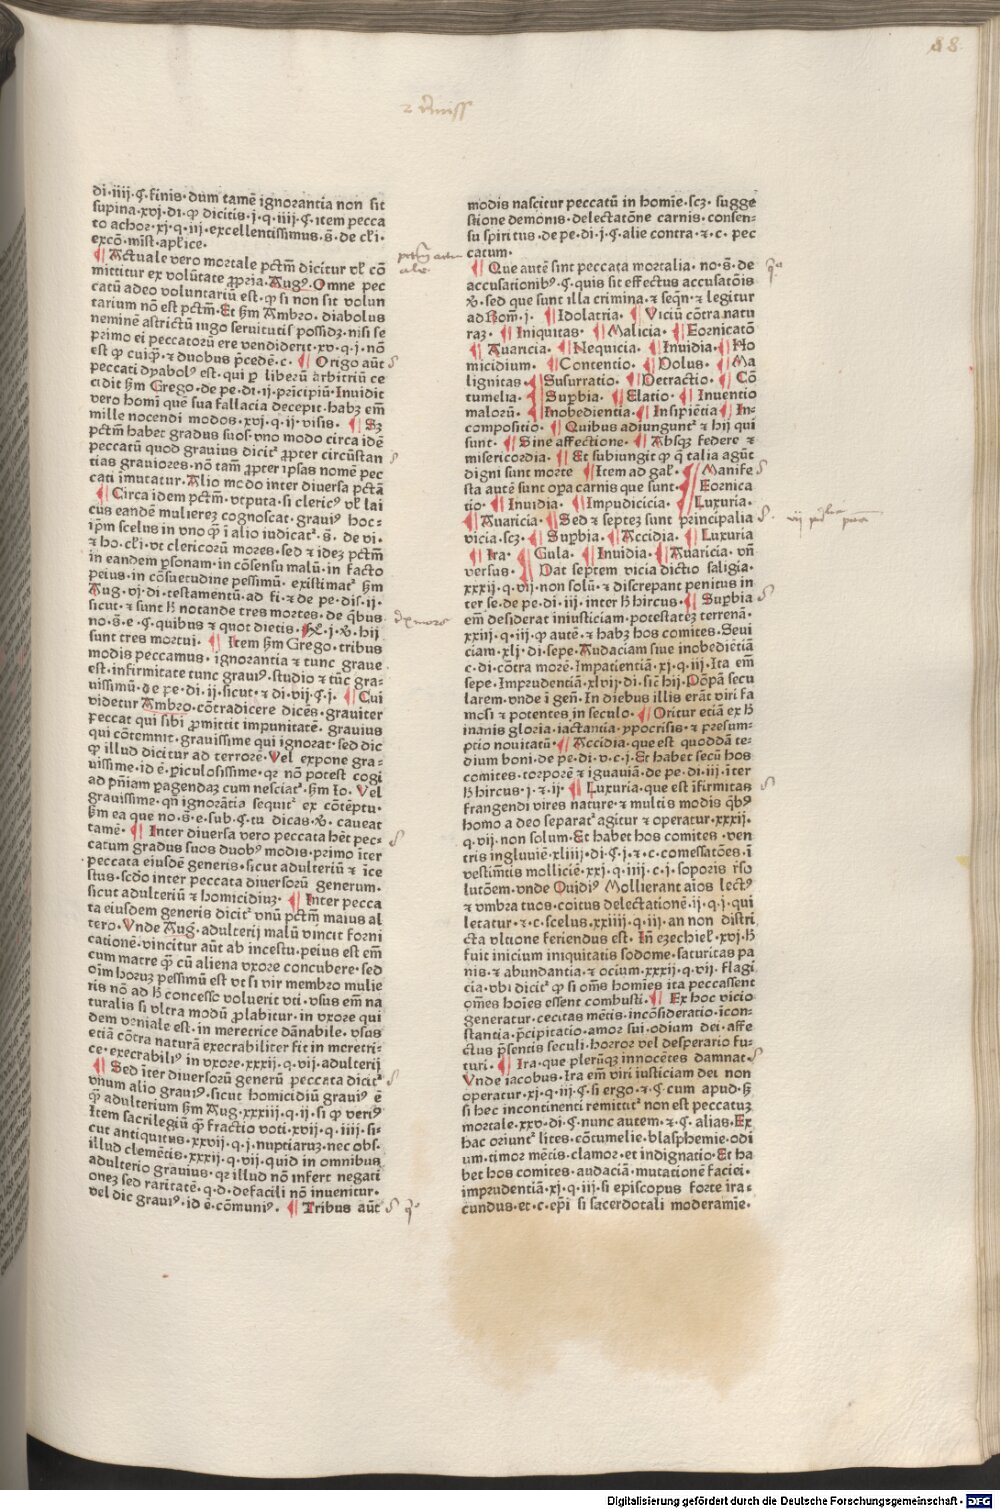 88
di·iiij·ꝯ·finis·dum tamē ignorantia non sit
supina·xvj·di·ꝙ dicitis·j·q·iiij·ꝯ·item pecca
to achor·xj·q·iij·excellentissimus·s̄·de cl̄i·
excō·mīst·apl̄ice·
Actuale vero mortale pctm̄ dicitur vl̄ cō
mittitur ex volūtate ꝓpria·Augꝰ·Omne pec
catū adeo voluntariū est·ꝙ si non sit volun
tarium nō est pctm̄·Et ẜm Ambro·diabolus
neminē astrictū iugo seruitutis possidꝫ·nisi se
primo ei peccatorū ere vendiderit·xv·q·j·nō
est ꝙ cuiqꝫ·⁊ duobus p̄cedē·c· Origo aūt
peccati dyabolꝰ est·qui ꝑ liberū arbitriū ce
cidit ẜm Grego·de pe·di·ij·pricipiū·Inuidit
vero homi quē sua fallacia decepit·habꝫ em̄
mille nocendi modos·xvj·q·ij·visis· Sꝫ
pctm̄ habet gradus suos·vno modo circa idē
peccatū quod grauius dicit᷑ ꝓpter circūstan
tias grauiores·nō tam̄ ꝓpter ipsas nomē pec
cati īmutatur·Alio modo inter diuersa pctā
Circa idem pctm̄·vtputa·si clericꝰ vl̄ lai
cus eandē mulierez cognoscat·grauiꝰ hoc-
ip̄m scelus in vno ꝙ̄ ī alio iudicat᷑·s̄·de vi·
⁊ ho·cl̄i·vt clericorū mores·sed ⁊ idez pctm̄
in eandem ꝑsonam·in cōsensu malū·in facto
peius·in cōsuetudine pessimū·existimat᷑ ẜm
Aug·vj·di·testamentū·ad fi·⁊ de pe·dis·ij·
sicut·⁊ sunt ħ notande tres mortes·de qͥbus
no·s̄·e·ꝯ·quibus ⁊ quot dietis· j·ꝟ·hij
sunt tres mortui· Item ẜm Grego·tribus
modis peccamus·ignorantia ⁊ tunc graue
est·infirmitate tunc grauiꝰ·studio ⁊ tūc gra-
uissimū·de pe·di·ij·sicut·⁊ di·vij·ꝯ·j· Cui
videtur Ambro·cōtradicere dicēs·grauiter
peccat qui sibi ꝓmittit impunitatē·grauius
qui cōtemnit·grauissime qui ignorat·sed dic
ꝙ illud dicitur ad terrorē·Vel expone gra-
uissime·id ē·ꝑiculosissime·qꝛ nō potest cogi
ad pn̄iam ꝑagendaꝫ cum nesciat᷑·ẜm Io·Vel
grauissime·qn̄ ignorātia sequit᷑ ex cōtēptu·
ẜm ea que no·s̄·e·sub·ꝯ·tu dicas·ꝟ·caueat
tamē· Inter diuersa vero peccata hēt pec-
catum gradus suos duobꝰ modis·primo īter
peccata eiusdē generis·sicut adulteriū ⁊ īce
stus·scdo inter peccata diuersorū generum·
sicut adulteriū ⁊ homicidiuꝫ· Inter pecca
ta eiusdem generis dicit᷑ vnū pctm̄ maius al
tero·Vnde Aug·adulterij malū vincit forni
cationē·vincitur aūt ab incestu·peius est em̄
cum matre ꝙ̄ cū aliena vxore concubere·sed
oīm horuꝫ pessimū est vt si vir membro mulie
ris nō ad ħ concesso voluerit vti·vsus em̄ na
turalis si vltra modū ꝓlabitur·in vxore qui
dem veniale est·in meretrice dānabile·vsus
etiā cōtra naturā execrabiliter fit in meretri-
ce·execrabiliꝰ in vxore·xxxij·q·vij·adulterij
Sed īter diuersorū generū peccata dicit᷑
vnum alio grauiꝰ·sicut homicidiū grauiꝰ ē
ꝙ̄ adulterium ẜm Aug·xxxiij·q·ij·si ꝙ veriꝰ
Item sacrilegiū ꝙ̄ fractio voti·xvij·q·iiij·si-
cut antiquitus·xxvij·q·j·nuptiaruꝫ·nec obs·
illud clemētis·xxxij·q·vij·quid in omnibus
adulterio grauius·qꝛ illud nō infert negati
oneꝫ sed raritatē·q·d·defacili nō inuenitur·
vel dic grauiꝰ·id ē·cōmuniꝰ· Tribus aūt
modis nascitur peccatū in homīe·scꝫ·sugge
stione demonis·delectatōne carnis·consen-
su spiritus·de pe·di·j·ꝯ·alie contra·⁊·c·pec
catum·
Que autē sint peccata mortalia·no·s̄·de
accusationibꝰ·ꝯ·quis sit effectus accusatōis
ꝟ·sed que sunt illa crimina·⁊ seqn̄·⁊ legitur
ad Rom̄·j· Idolatria· Viciū cōtra natu
raꝫ· Iniquitas· Malicia· Fornicatō
Auaricia· Nequicia· Inuidia· Ho
micidium· Contentio· Dolus· Ma
lignitas· Susurratio· Detractio· Cō
tumelia· Suꝑbia· Elatio· Inuentio
malorū· Inobedientia· Insipiētia In-
compositio· Quibus adiungunt᷑ ⁊ hij qui
sunt· Sine affectione· Absqꝫ federe ⁊
misericordia· Et subiungit ꝙ q̄ talia agūt
digni sunt morte Item ad gal̄· Manife
sta autē sunt oꝑa carnis que sunt· Fornica
tio· Inuidia· Impudicicia· Luxuria·
Auaricia· Sed ⁊ septeꝫ sunt principalia
vicia·scꝫ· Suꝑbia· Accidia· Luxuria
Ira· Gula· Inuidia· Auaricia·vn̄
versus· Dat septem vicia dictio saligia·
xxxij·q·vij·non solū·⁊ discrepant penitus in
ter se·de pe·di·iij·inter ħ hircus· Suꝑbia
em̄ desiderat iniusticiam·potestateꝫ terrenā·
xxiij·q·iij·ꝙ autē·⁊ habꝫ hos comites·Seui
ciam·xlj·di·sepe·Audaciam siue inobediētiā
c·di·cōtra morē·Impatientiā·xj·q·iij·Ita em̄
sepe·Imprudentiā·xlvij·di·sic̄ hij·Pōpā secu
larem·vnde ī gen̄·In diebus illis erāt viri fa
mosi ⁊ potentes in seculo· Oritur etiā ex ħ
inanis gloria·iactantia·ypocrisis·⁊ presum-
ptio nouitatū· Accidia·que est quoddā te-
dium boni·de pe·di·v·c·j·Et habet secū hos
comites·torporē ⁊ igauiā·de pe·di·iij·īter
ħ hircus·j·⁊·ij· Luxuria·que est īfirmitas
frangendi vires nature·⁊ multis modis qͥbꝰ
homo a deo separat᷑ agitur ⁊ operatur·xxxij·
q·vij·non solum·Et habet hos comites·ven
tris ingluuiē·xliiij·di·ꝯ·j·⁊·c·comessatōes·ī
vestim̄tis molliciē·xxj·q·iiij·c·j·soporis r̄so
lutōem·vnde Ouidiꝰ Mollierant aīos lectꝰ
⁊ vmbra tuos·coitus delectationē·ij·q·j·qui
letatur·⁊·c·scelus·xxiiij·q·iij·an non distri
cta vltione feriendus est·In̄ ezechiel̄·xvj·ħ
fuit inicium iniquitatis sodome·saturitas pa
nis·⁊ abundantia·⁊ ocium·xxxij·q·vij·flagi
cia·vbi dicit᷑ ꝙ si om̄s homīes ita peccassent
om̄es hoīes essent combusti· Ex hoc vicio
generatur·cecitas mētis·incōsideratio·īcon-
stantia·p̄cipitatio·amor sui·odium dei·affe
ctus p̄sentis seculi·horror vel desperatio fu-
turi· Ira·que plerūqꝫ innocētes damnat·
Vnde iacobus·Ira em̄ viri iusticiam dei non
operatur·xj·q·iij·ꝯ·si ergo·⁊·ꝯ·cum apud·ꝭ
si hec incontinenti remittit᷑ non est peccatuꝫ
mortale·xxv·di·ꝯ·nunc autem·⁊·ꝯ·alias·Ex
hac oriunt᷑ lites·cōtumelie·blasphemie·odi
um·timor mētis·clamor·et indignatio·Et ha
bet hos comites·audaciā·mutationē faciei·
imprudentiā·xj·q·iij·si episcopus forte ira-
cundus·et·c·ep̄i si sacerdotali moderamīe·
Digitalisierung gefördert durch die Deutsche Forschungsgemeinschaft - DFG